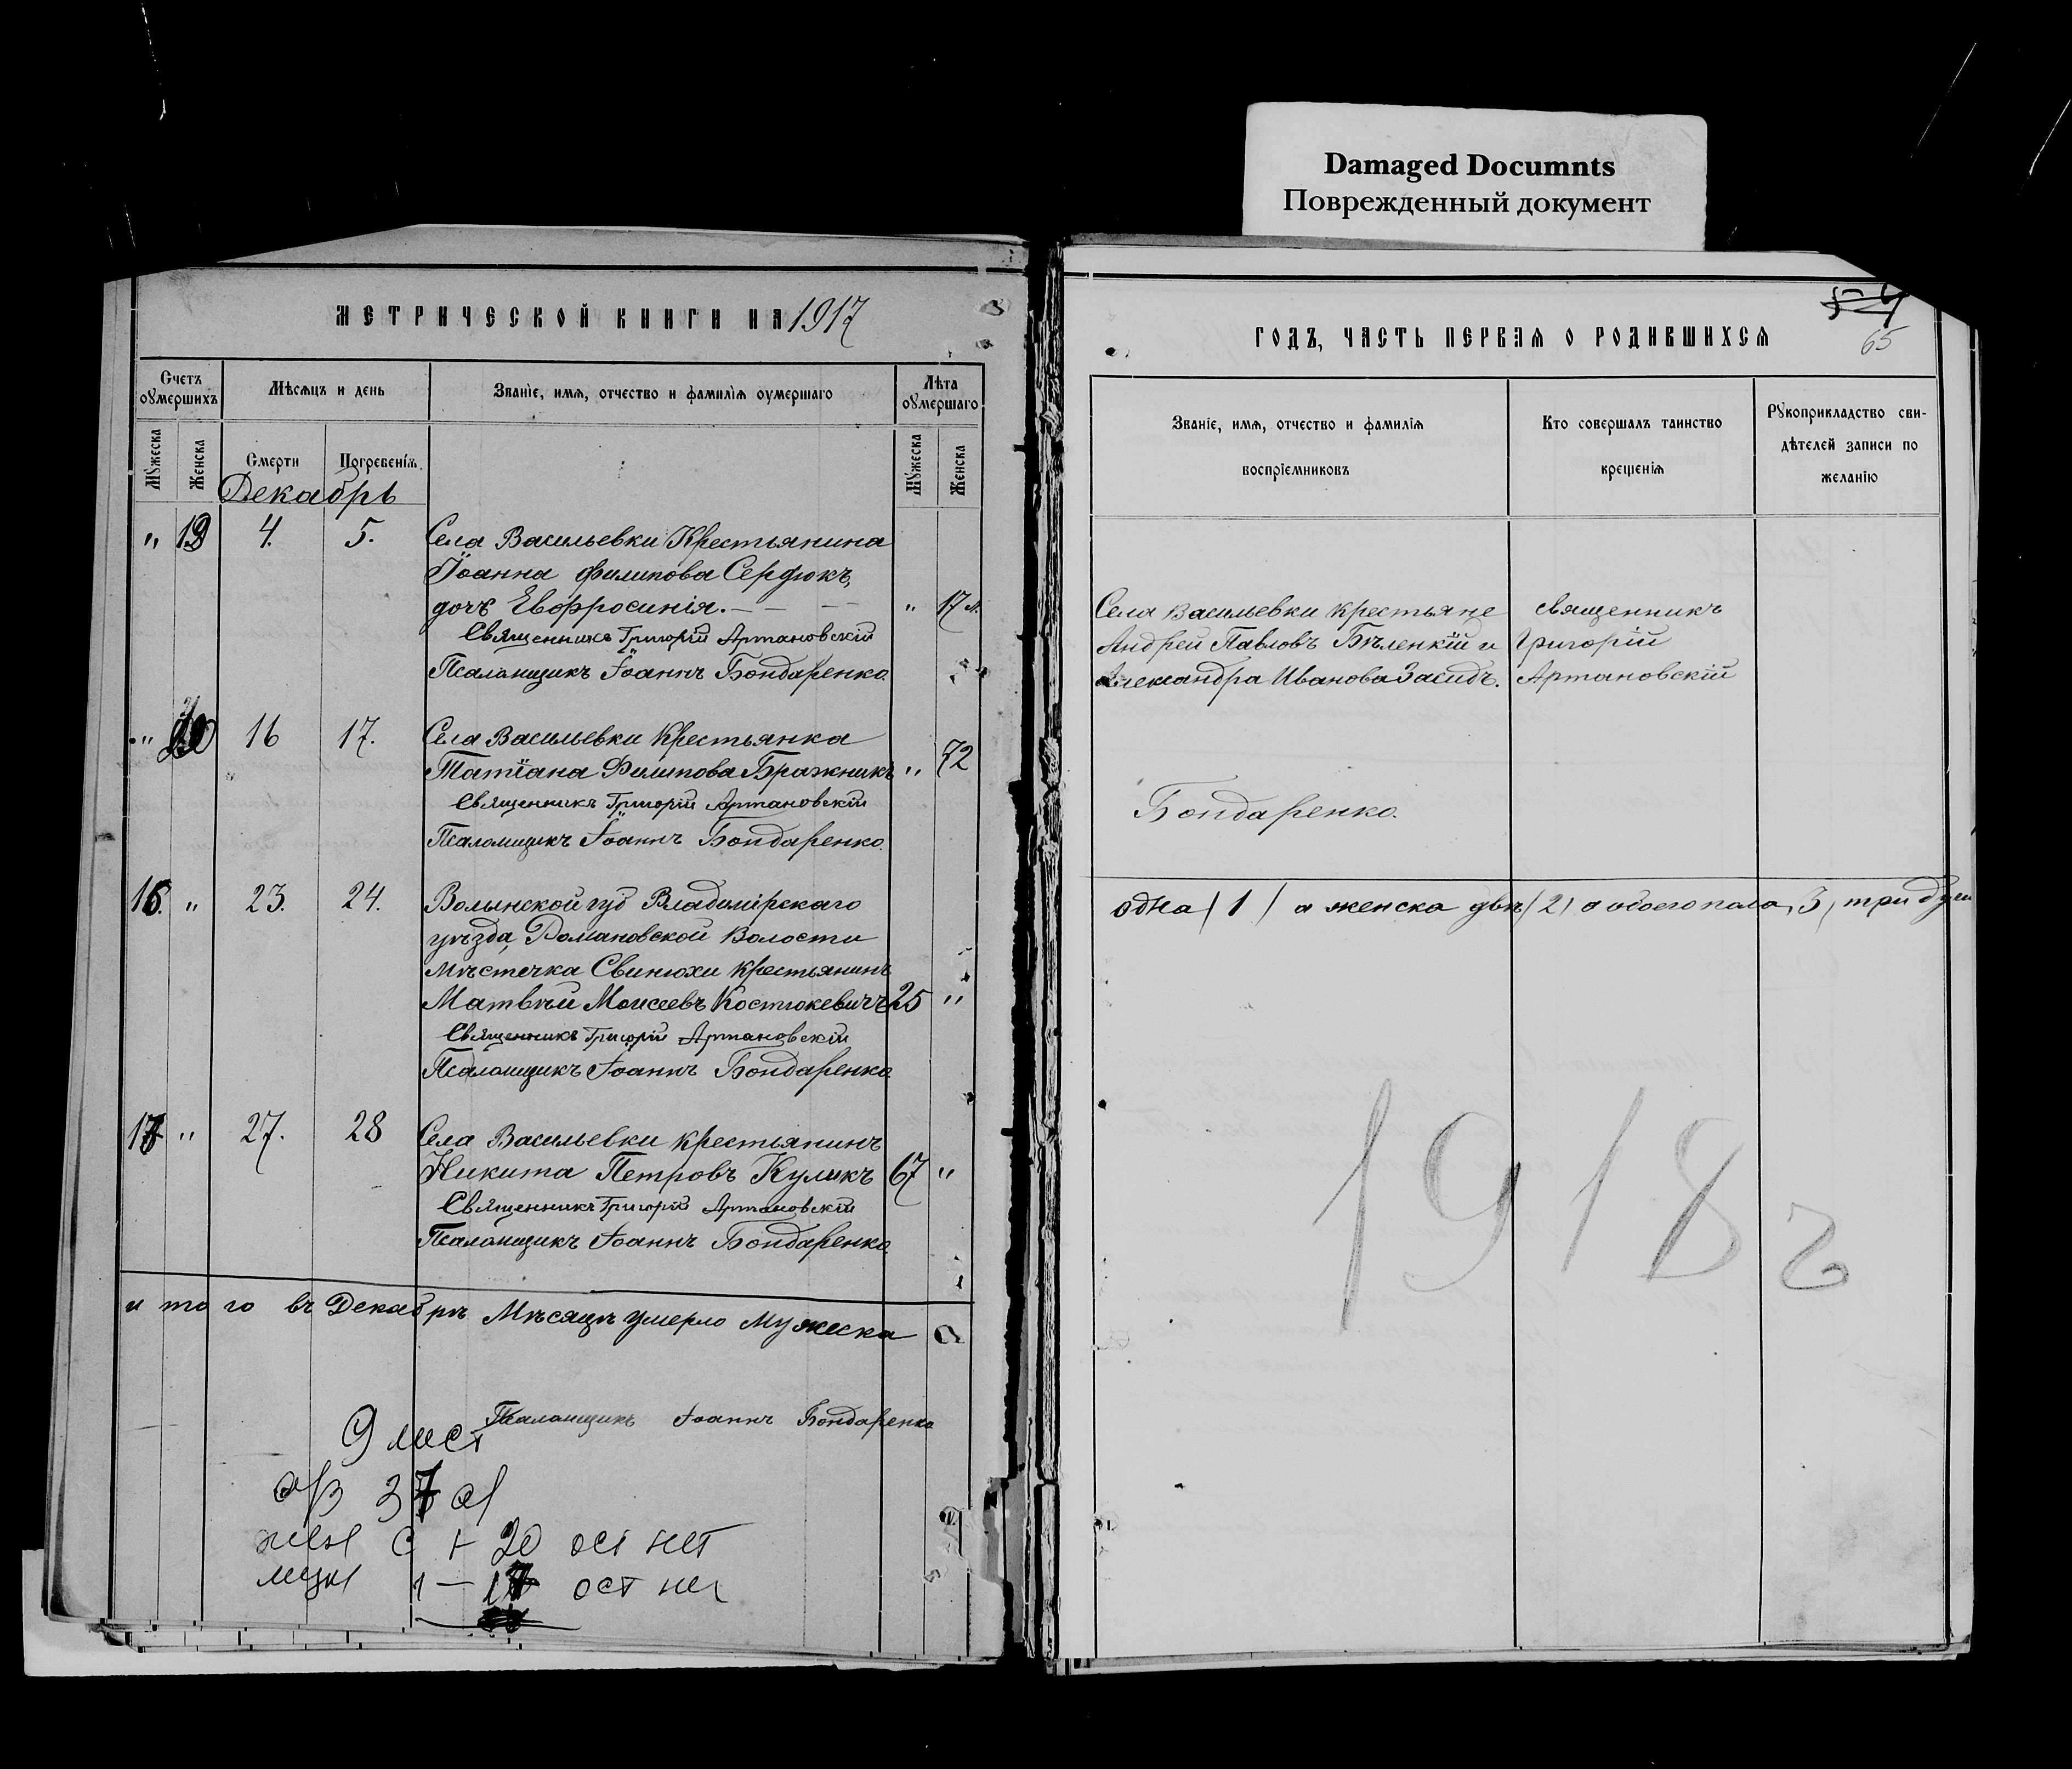 Damaged Documnts
Поврежденный документ
МЕТРИЧЕСКОЙ КНИГИ НА 1917
Счетъ оумершихъ
Мѣсяцъ и день
Званіе, имя, отчество и фамилія оумершаго
Лѣта оумершаго
Мужеска
Женска
Смерти
Погребенія.
Мужеска
Женска
Декабрь
" 19 4. 5. Села Васильевки Крестьянина
Іоанна Филипова Сердюкъ,
дочь Евфросинія. — — — " 17 л.
Священникъ Григорій Артановскій
Псаломщикъ Іоаннъ Бондаренко.
" 20 16 17. Села Васильевки Крестьянка
Татіана Филипова Бражникъ " 72
Священникъ Григорій Артановскій
Псаломщикъ Іоаннъ Бондаренко.
16. " 23. 24. Волынской губ Владимірскаго
уѣзда, Романовской Волости
мѣстечка Свинюхи крестьянинъ
Матвѣй Моисеевъ Костюкевичъ 25 "
Священникъ Григорій Артановскій
Псаломщикъ Іоаннъ Бондаренко.
17 " 27. 28 Села Васильевки крестьянинъ
Никита Петровъ Куликъ 67 "
Священникъ Григорій Артановскій
Псаломщикъ Іоаннъ Бондаренко.
и того въ Декабрѣ Мѣсяцѣ умерло Мужеска
Псаломщикъ Іоаннъ Бондаренко
9 лист
37
жен с 1 20 ост нет
муж 1 — 17 ост нет
ГОДЪ, ЧАСТЬ ПЕРВАЯ О РОДИВШИХСЯ
54
65
Званіе, имя, отчество и фамилія
воспріемниковъ
Кто совершалъ таинство
крещенія
Рукоприкладство сви-
дѣтелей записи по
желанію
Села Васильевки крестьяне
Андрей Павловъ Бѣленкій и
Александра Иванова Засидъ.
священникъ
Григорій
Артановскій
Бондаренко.
одна (1) а женска двѣ (2) а обоего пола, 3, три души
1918 г